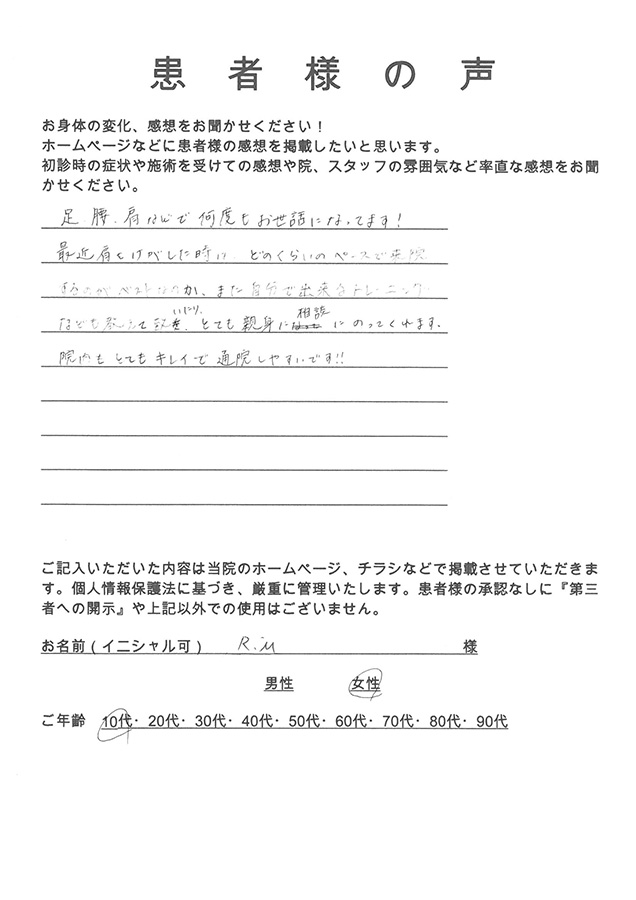 患者様の声
お身体の変化、感想をお聞かせください！
ホームページなどに患者様の感想を掲載したいと思います。
初診時の症状や施術を受けての感想や院、スタッフの雰囲気など率直な感想をお聞
かせください。
足、腰、肩なんで何度もお世話になってます！
最近肩をけがした時は、どのくらいのペースで来院
するのがベストなのか、また自分で出来るトレーニング
なども教えて いたり、とても親身に相談にのってくれます。
院内もとてもキレイで通院しやすいです!!
ご記入いただいた内容は当院のホームページ、チラシなどで掲載させていただきま
す。個人情報保護法に基づき、厳重に管理いたします。患者様の承認なしに『第三
者への開示』や上記以外での使用はございません。
お名前（イニシャル可） R.M 様
男性 女性
ご年齢 10代・20代・30代・40代・50代・60代・70代・80代・90代